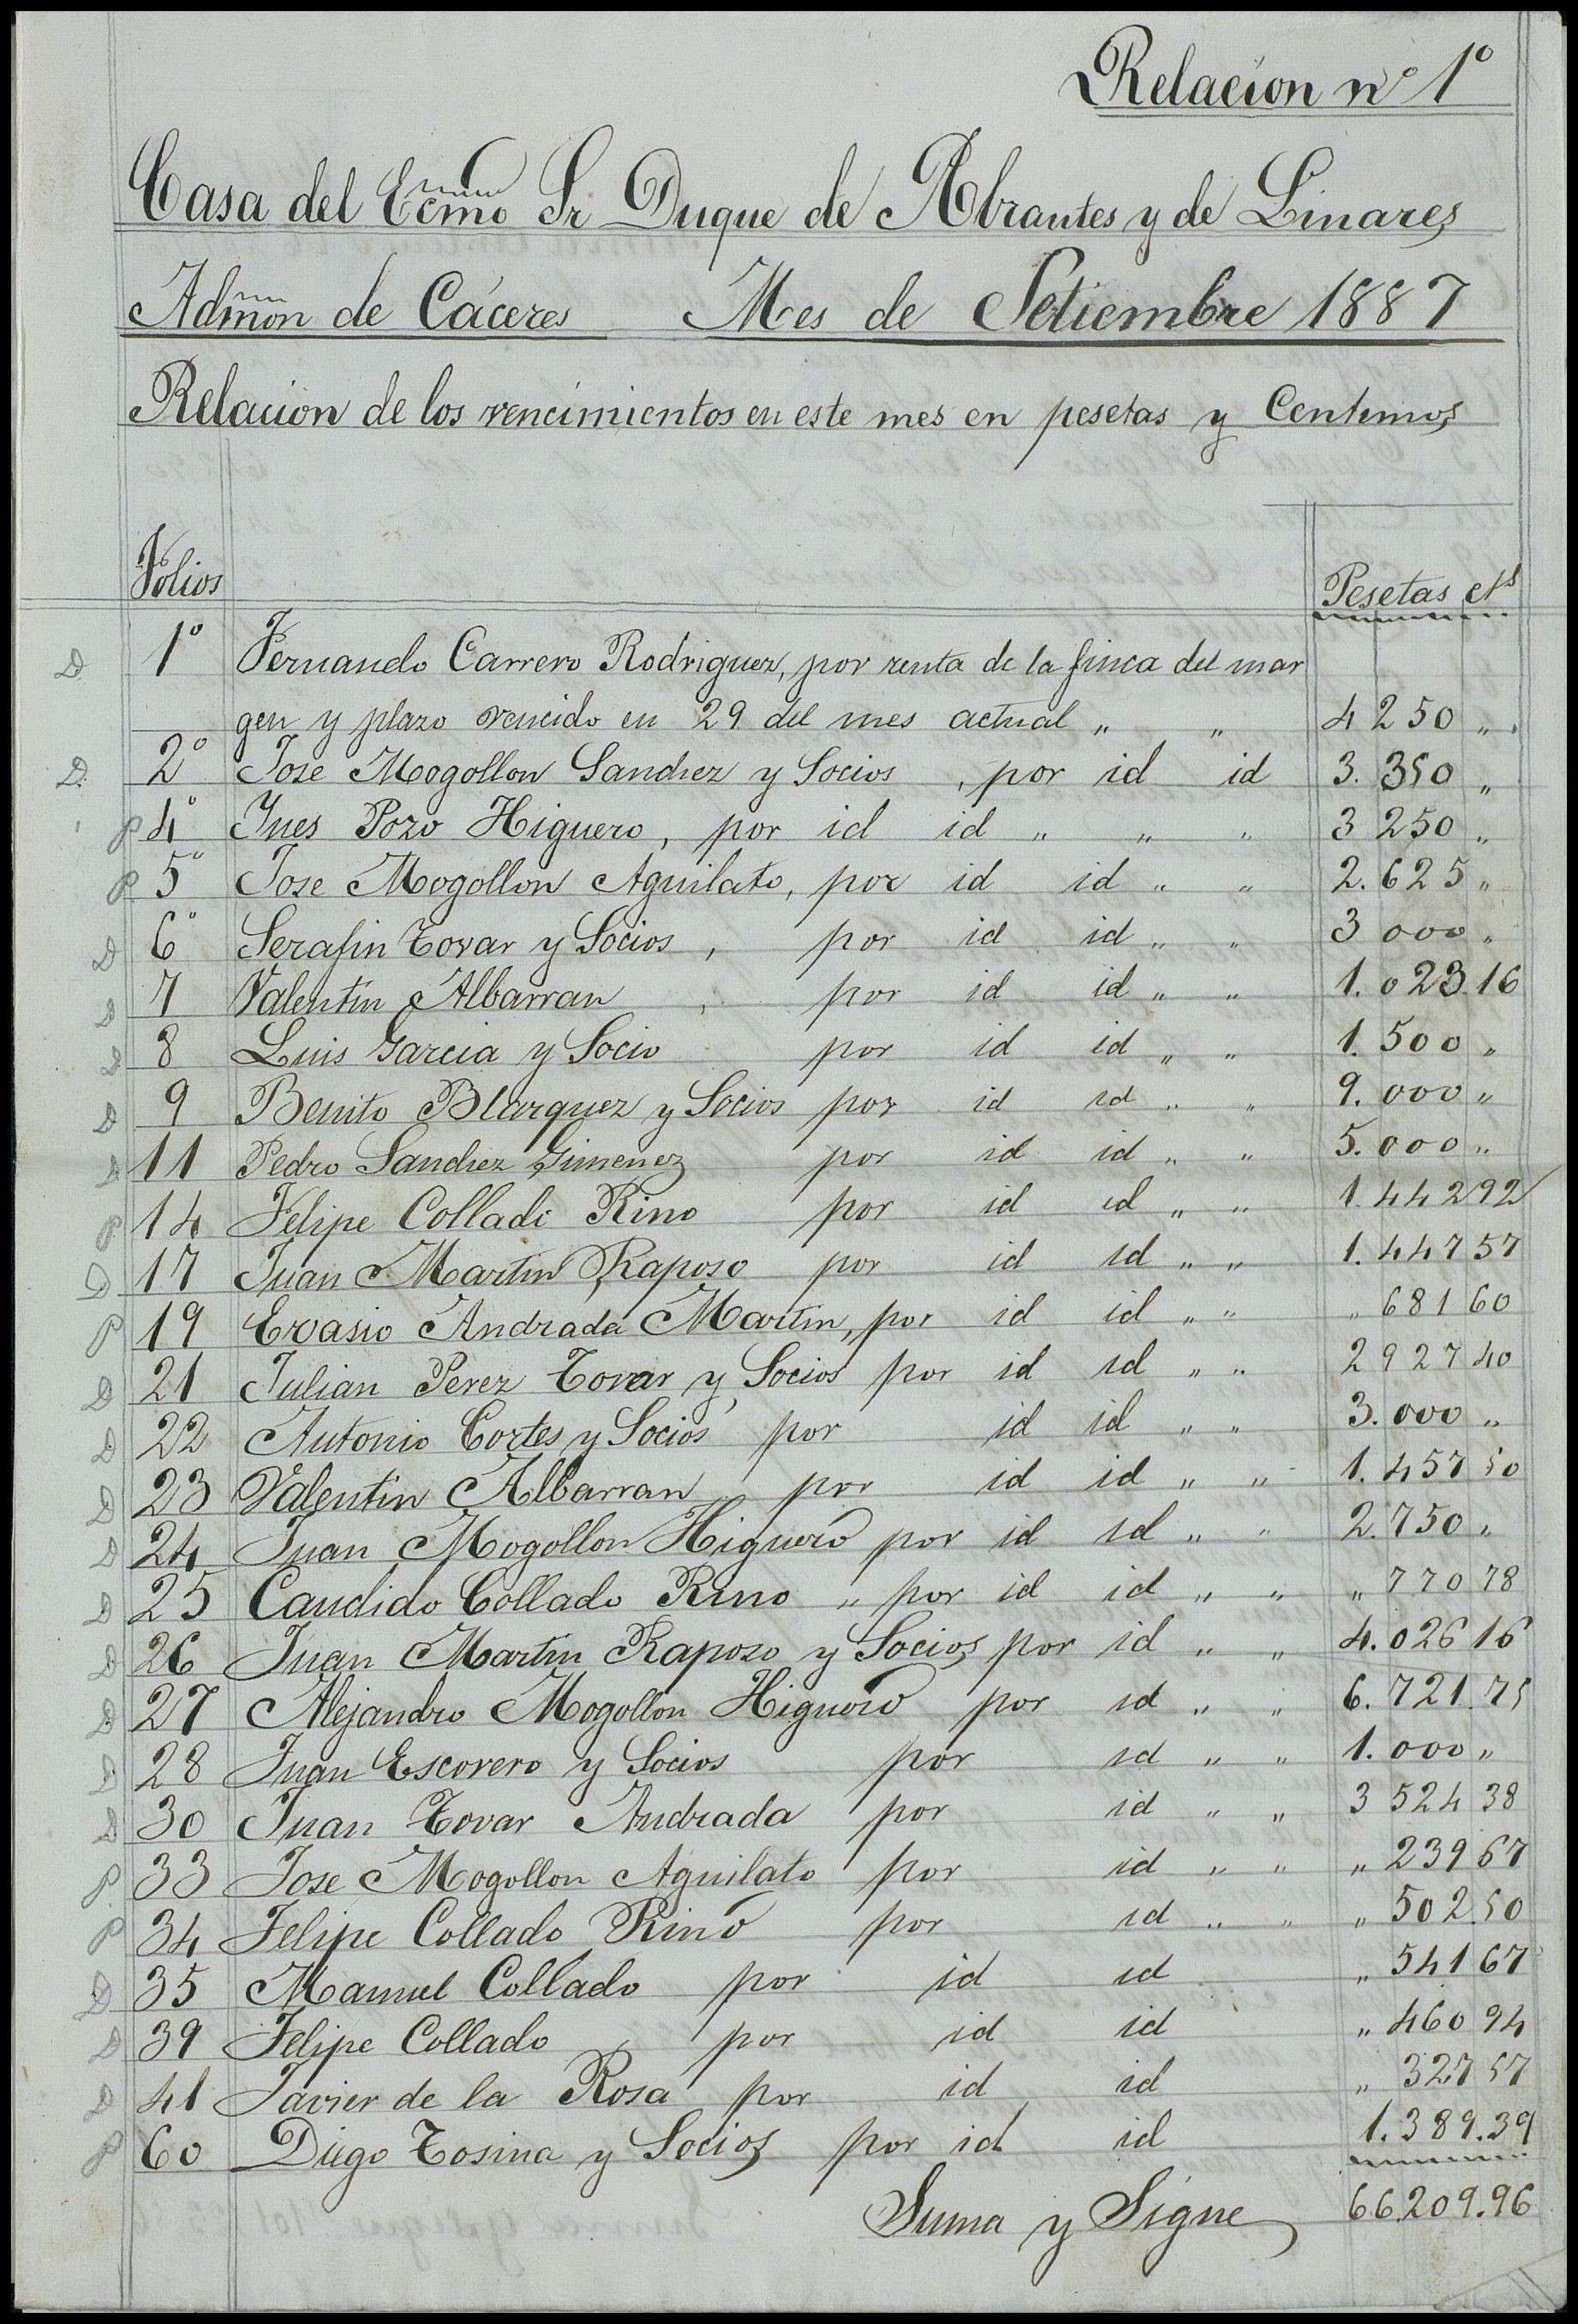 Relacion nº 1º
Casa del Ecmo Sr Duque de Abrantes y de Linares
Admon de Cáceres Mes de Setiembre 1887
Relacion de los vencimientos en este mes en pesetas y Centimos
Folios Pesetas cts
D. 1º Fernando Carrero Rodriguez, por renta de la finca del mar
gen y plazo vencido en 29 del mes actual „ „ 4 250 „
D. 2º Jose Mogollon Sanchez y Socios, por id id 3. 350 „
P 4º Ines Pozo Higuero, por id id „ „ „ 3 250 „
P 5º Jose Mogollon Aguilato, por id id „ „ 2. 625 „
D 6º Serafin Tovar y Socios, por id id „ „ 3 000 „
D 7 Valentin Albarran, por id id „ „ 1. 023.16
D 8 Luis Garcia y Socio por id id „ „ 1. 500 „
D 9 Benito Blazquez y Socios por id id „ „ 9. 000 „
D 11 Pedro Sanchez Gimenez por id id „ „ 5. 000 „
P 14 Felipe Colladi Rino por id id „ „ 1. 442 92
D 17 Juan Martin Raposo por id id „ „ 1. 447 57
P 19 Evasio Andrada Martin, por id id „ „ „ 681 60
D 21 Julian Perez Tovar y Socios por id id „ „ 2 927 40
D 22 Antonio Cortes y Socios por id id „ „ 3. 000 „
D 23 Valentin Albarran por id id „ „ 1. 457 50
D 24 Juan Mogollon Higuero por id id „ „ 2. 750 „
D 25 Candido Collado Rino „ por id id „ „ „ 770 78
D 26 Juan Martin Raposo y Socios por id „ „ 4. 026 16
D 27 Alejandro Mogollon Higuero por id „ „ 6. 721.75
D 28 Juan Escovero y Socios por id „ „ 1. 000 „
D 30 Juan Tovar Andrada por id „ „ 3 524 38
P 33 Jose Mogollon Aguilato por id „ „ „ 239 67
P 34 Felipe Collado Rino por id „ „ „ 502.50
D 35 Manuel Collado por id id „ 541 67
D 39 Felipe Collado, por id id „ 460 94
D 41 Javier de la Rosa por id id „ 327 57
P 60 Diego Tosina y Socios por id id 1. 389.39
Suma y Sigue 66.209.96